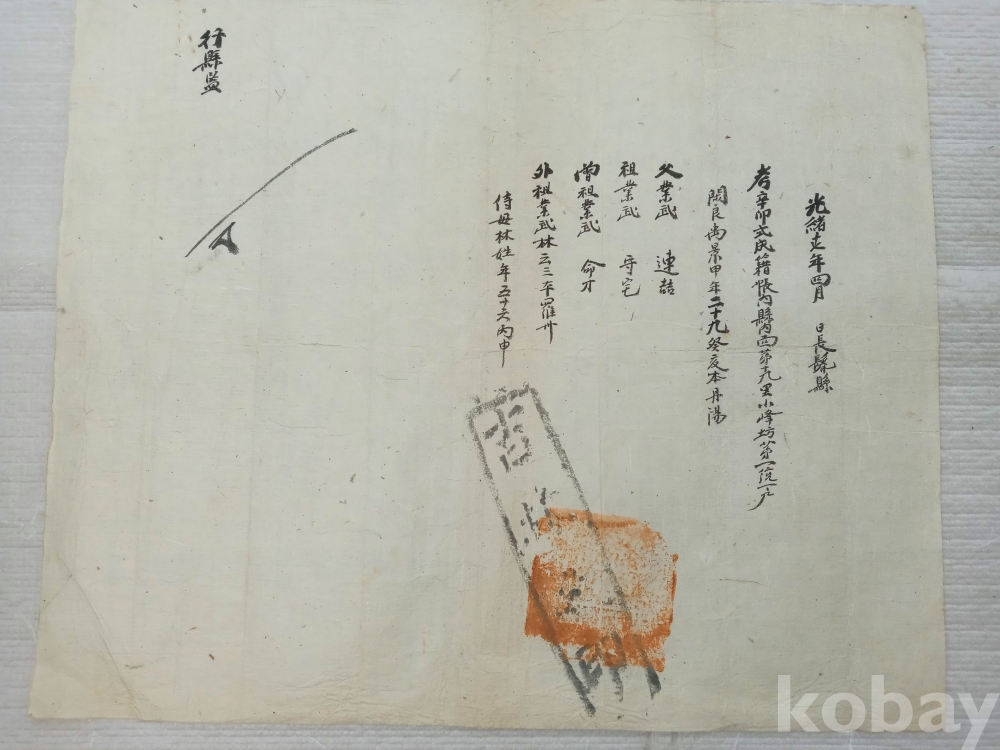 光緒十七年四月 日長鬐縣
考辛卯式成籍帳內縣內面第九里小峰坊第一統一户
閑良 景甲年二十九癸亥本丹陽
父業武 連喆
祖業武 守宅
曾祖業武 命才
外祖業武林云三本羅州
侍母林姓年五十六丙申
行縣監
kobay